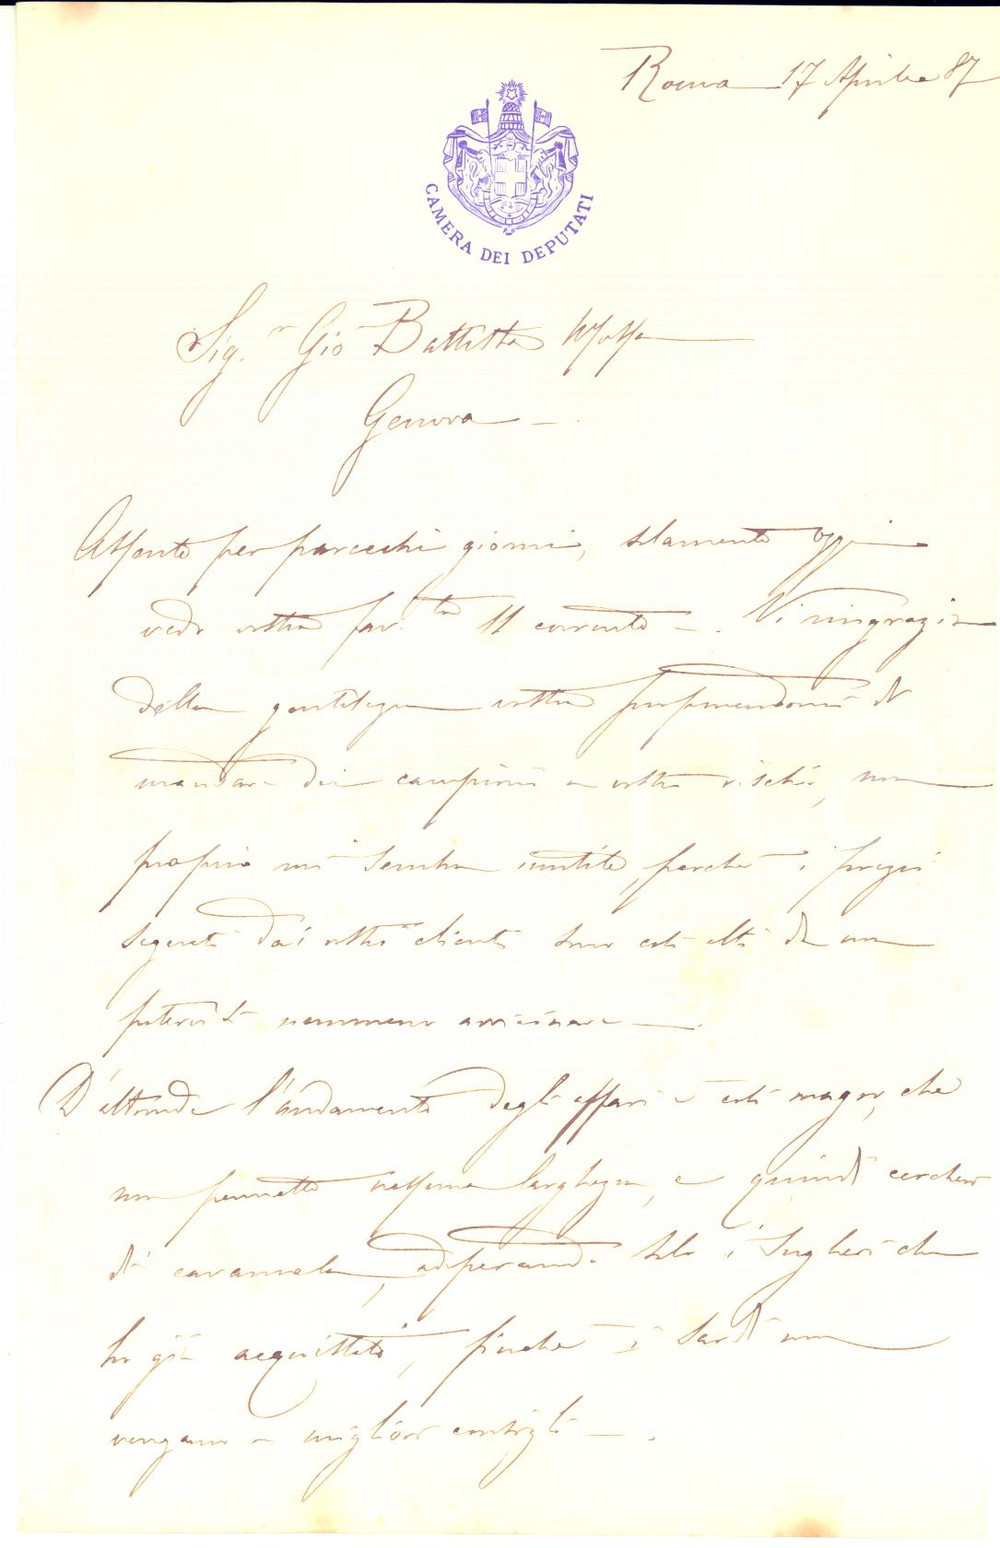 Roma 17 Aprile 87
CAMERA DEI DEPUTATI
Sig.r Gio Battista
Genova
Assente per parecchi giorni, solamente oggi
vedo vostra fav.ta 11 corrente. Vi ringrazio
della gentilezza vostra proponendomi di
mandare dei campioni a vostro rischio, ma
proprio mi sembra inutile, perchè i prezzi
segnati dai vostri clienti sono così alti da non
potervisi nemmeno avvicinare.
D'altronde l'andamento degli affari è così magro, che
non permette nessuna larghezza, e quindi cercherò
di cavarmela, adoperando solo i Sugheri che
ho già acquistati, finche i Sardi non
vengano a miglior consiglio.